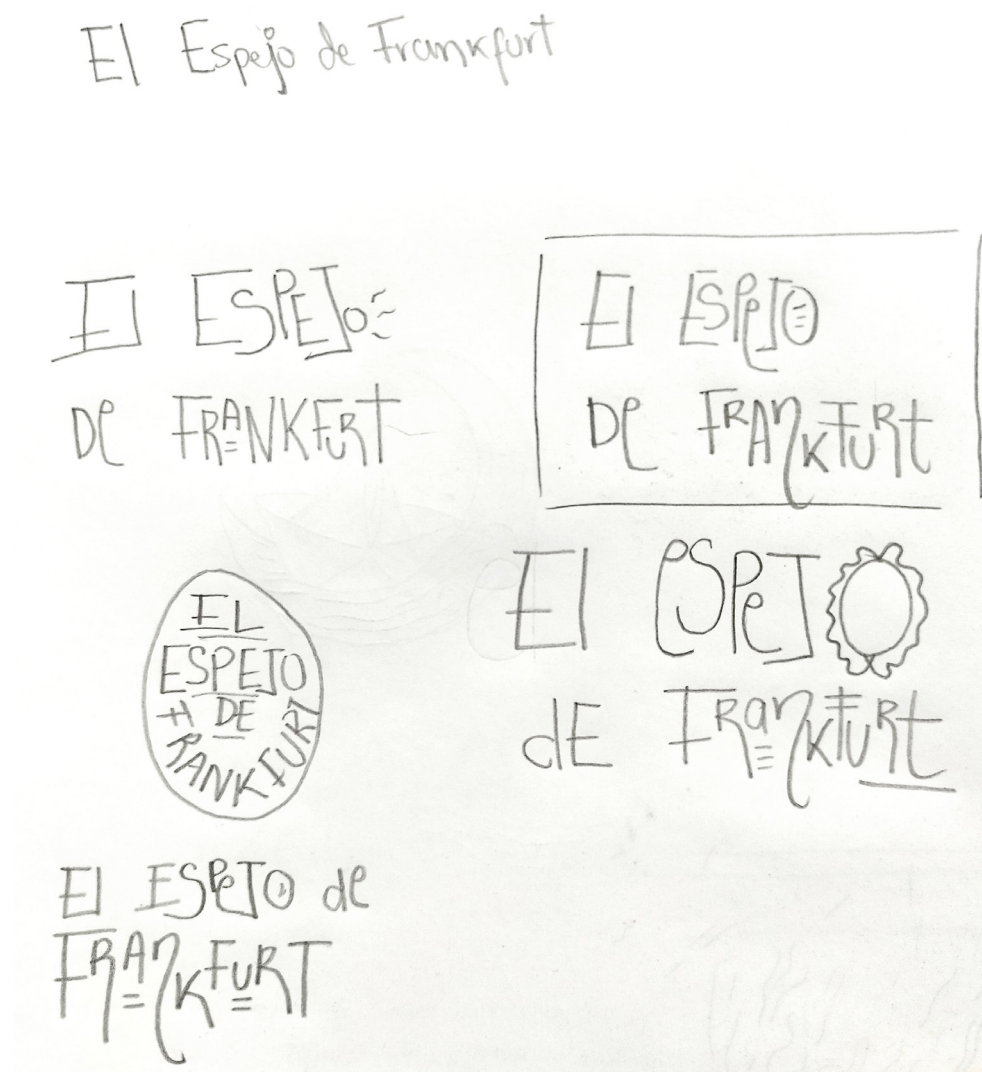 El Espejo de Frankfurt
El ESPEJo
De FRANKFURt
El ESPeJO
De FRAnKFURt
EL
ESPEJO
DE
FRANKFURT
El eSPeJO
dE FRanKFURt
El ESPeJO de
FRAnKFURT